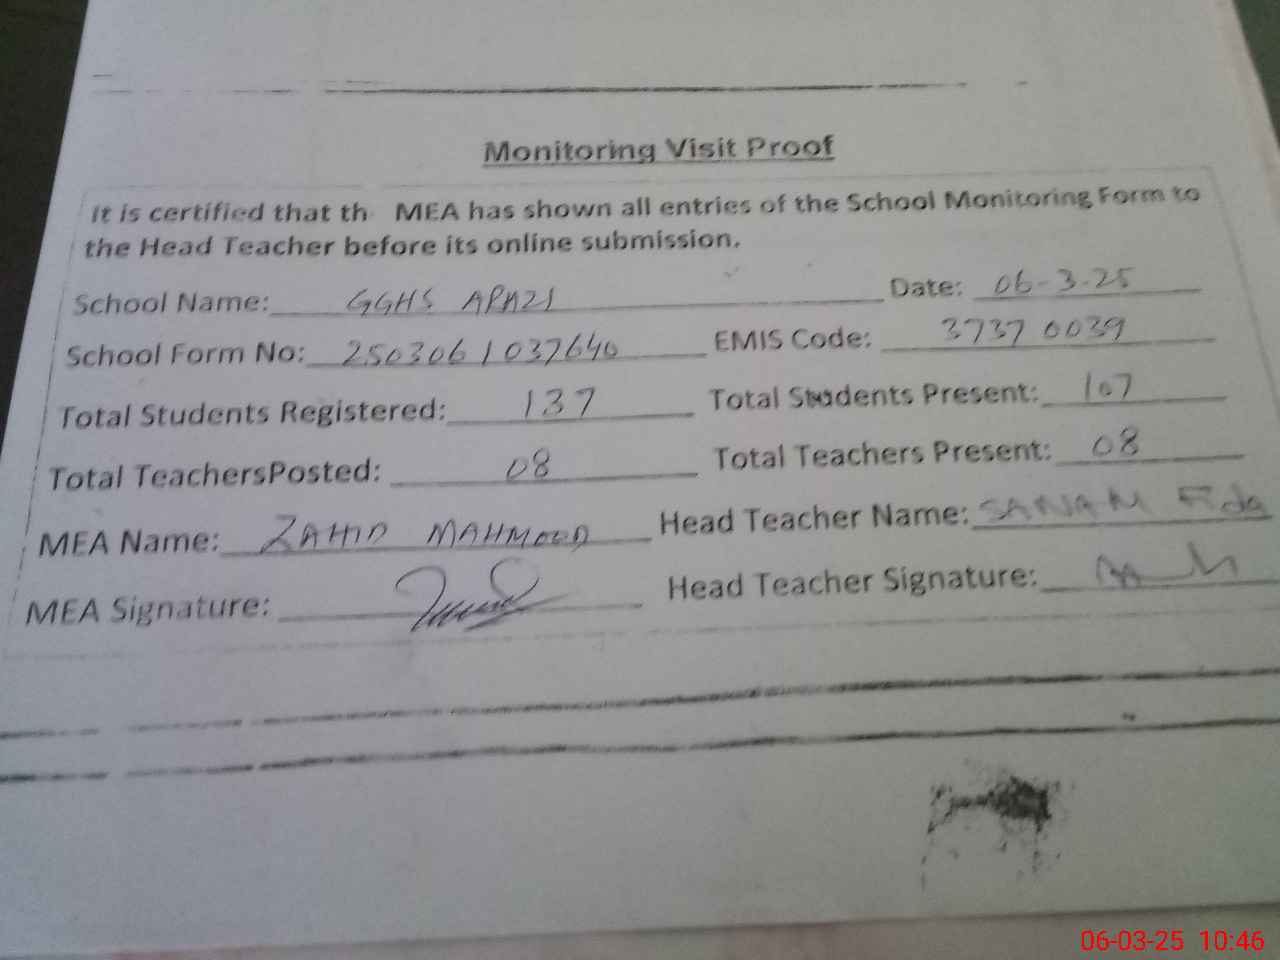 Monitoring Visit Proof
It is certified that th MEA has shown all entries of the School Monitoring Form to
the Head Teacher before its online submission.
School Name: GGHS APAZI Date: 06-3-25
School Form No: 2503061037640 EMIS Code: 37370039
Total Students Registered: 137 Total Students Present: 107
Total TeachersPosted: 08 Total Teachers Present: 08
MEA Name: ZAHID MAHMOOD Head Teacher Name: SANAM Fida
MEA Signature: Head Teacher Signature:
06-03-25 10:46